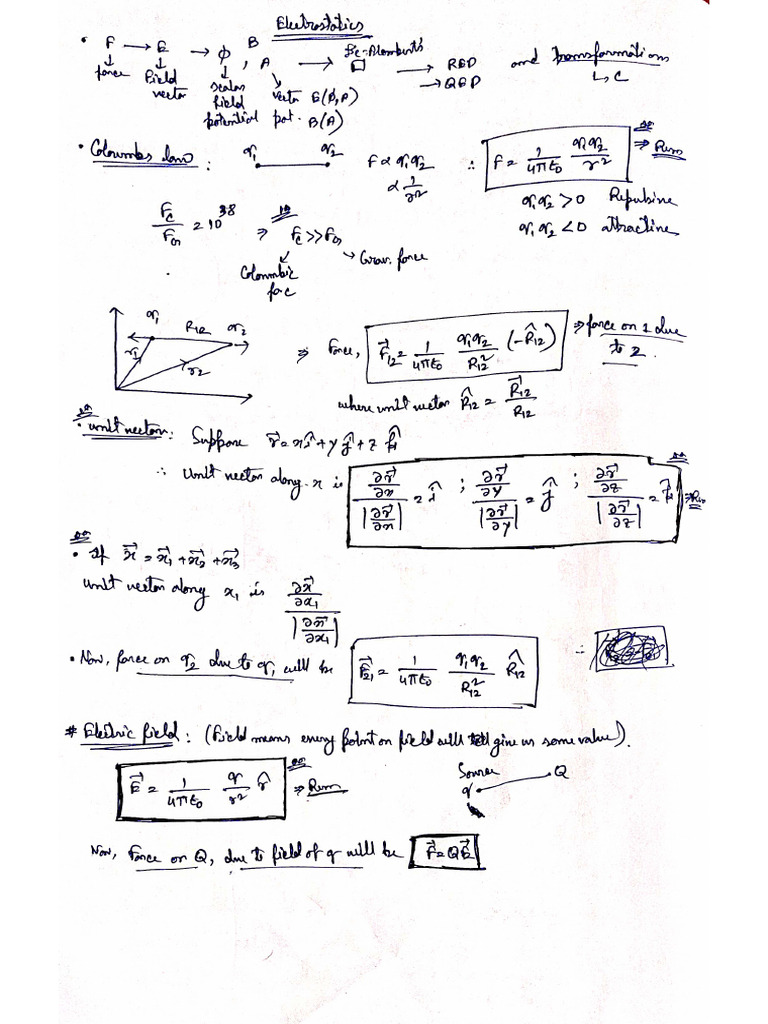 Electrostatics
• F → E → ϕ, B A → De-Alembert's □ → RED → QED and transformations L, C
force field vector scalar field potential vector pot. E(ϕ,A) B(A)
• Coloumbs law : q₁ q₂ F ∝ q₁q₂ ∝ 1/r² ∴ F = 1/4πε₀ q₁q₂/r² ⇒ Rem
q₁q₂ > 0 Repulsive
q₁q₂ < 0 attractive
F_c/F_G = 10³⁸ ⇒ F_c >> F_G → Grav. force
Coloumbic force
q₁ R₁₂ q₂ r₁ r₂
⇒ Force, F⃗₁₂ = 1/4πε₀ q₁q₂/R₁₂² (-R̂₁₂) ⇒ force on 1 due to 2.
where unit vector R̂₁₂ = R⃗₁₂/R₁₂
• Unit vector : Suppose r⃗ = xî + yĵ + zk̂
∴ Unit vector along x is ∂r⃗/∂x / |∂r⃗/∂x| = î ; ∂r⃗/∂y / |∂r⃗/∂y| = ĵ ; ∂r⃗/∂z / |∂r⃗/∂z| = k̂ ⇒ Rem
• If x⃗ = x⃗₁ + x⃗₂ + x⃗₃
Unit vector along x₁ is ∂x⃗/∂x₁ / |∂x⃗/∂x₁|
• Now, force on q₂ due to q₁ will be F⃗₂₁ = 1/4πε₀ q₁q₂/R₁₂² R̂₁₂ ∴
# Electric field : (Field means every point on field will give us some value).
E⃗ = 1/4πε₀ q/r² r̂ ⇒ Rem
Source q Q
Now, Force on Q, due to field of q will be F⃗ = QE⃗